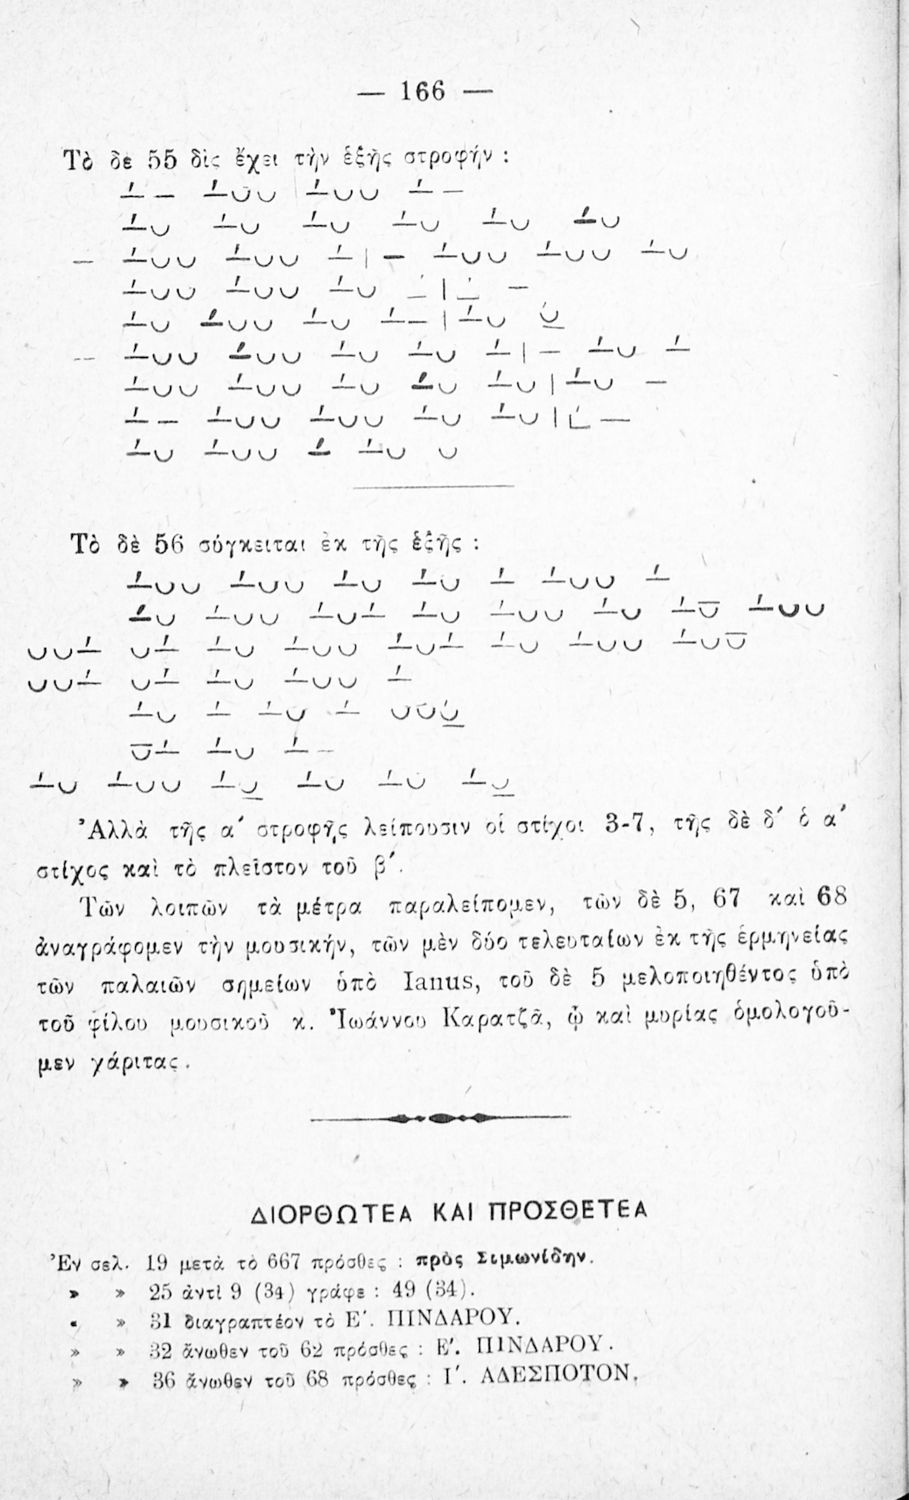 — 166 —
Τὸ δὲ 55 δὶς ἔχει τὴν ἑξῆς στροφήν :
Τὸ δὲ 56 σύγκειται ἐκ τῆς ἑξῆς :
Ἀλλὰ τῆς α΄ στροφῆς λείπουσιν οἱ στίχοι 3-7, τῆς δὲ δ΄ ὁ α΄
στίχος καὶ τὸ πλεῖστον τοῦ β΄.
Τῶν λοιπῶν τὰ μέτρα παραλείπομεν, τῶν δὲ 5, 67 καὶ 68
ἀναγράφομεν τὴν μουσικήν, τῶν μὲν δύο τελευταίων ἐκ τῆς ἑρμηνείας
τῶν παλαιῶν σημείων ὑπὸ Ianus, τοῦ δὲ 5 μελοποιηθέντος ὑπὸ
τοῦ φίλου μουσικοῦ κ. Ἰωάννου Καρατζᾶ, ᾧ καὶ μυρίας ὁμολογοῦ-
μεν χάριτας.
ΔΙΟΡΘΩΤΕΑ ΚΑΙ ΠΡΟΣΘΕΤΕΑ
Ἐν σελ. 19 μετὰ τὸ 667 πρόσθες : πρὸς Σιμωνίδην.
» » 25 ἀντὶ 9 (34) γράφε : 49 (34).
» » 31 διαγραπτέον τὸ Ε΄. ΠΙΝΔΑΡΟΥ.
» » 32 ἄνωθεν τοῦ 62 πρόσθες : Ε΄. ΠΙΝΔΑΡΟΥ.
» » 36 ἄνωθεν τοῦ 68 πρόσθες : Ι΄. ΑΔΕΣΠΟΤΟΝ.